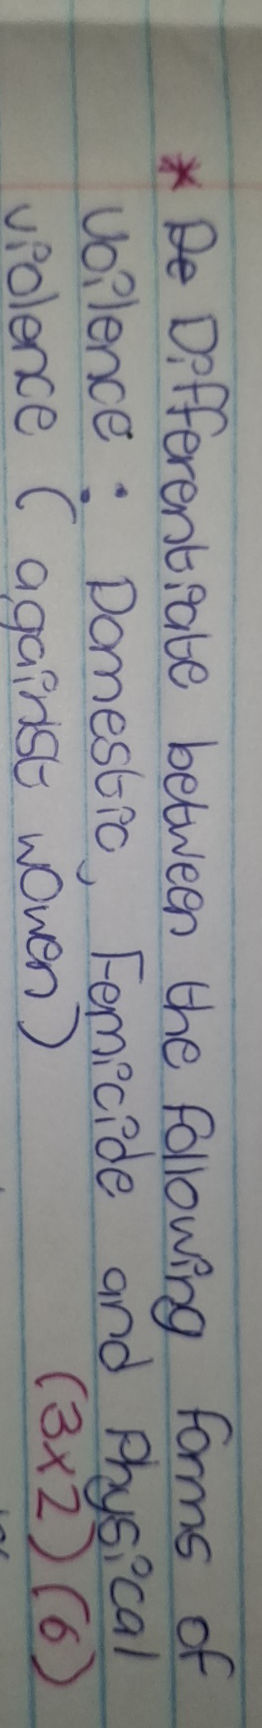 * De Differentiate between the following forms of
Voilence : Domestic, Femicide and Physical
violence (against women) (3x2) (6)